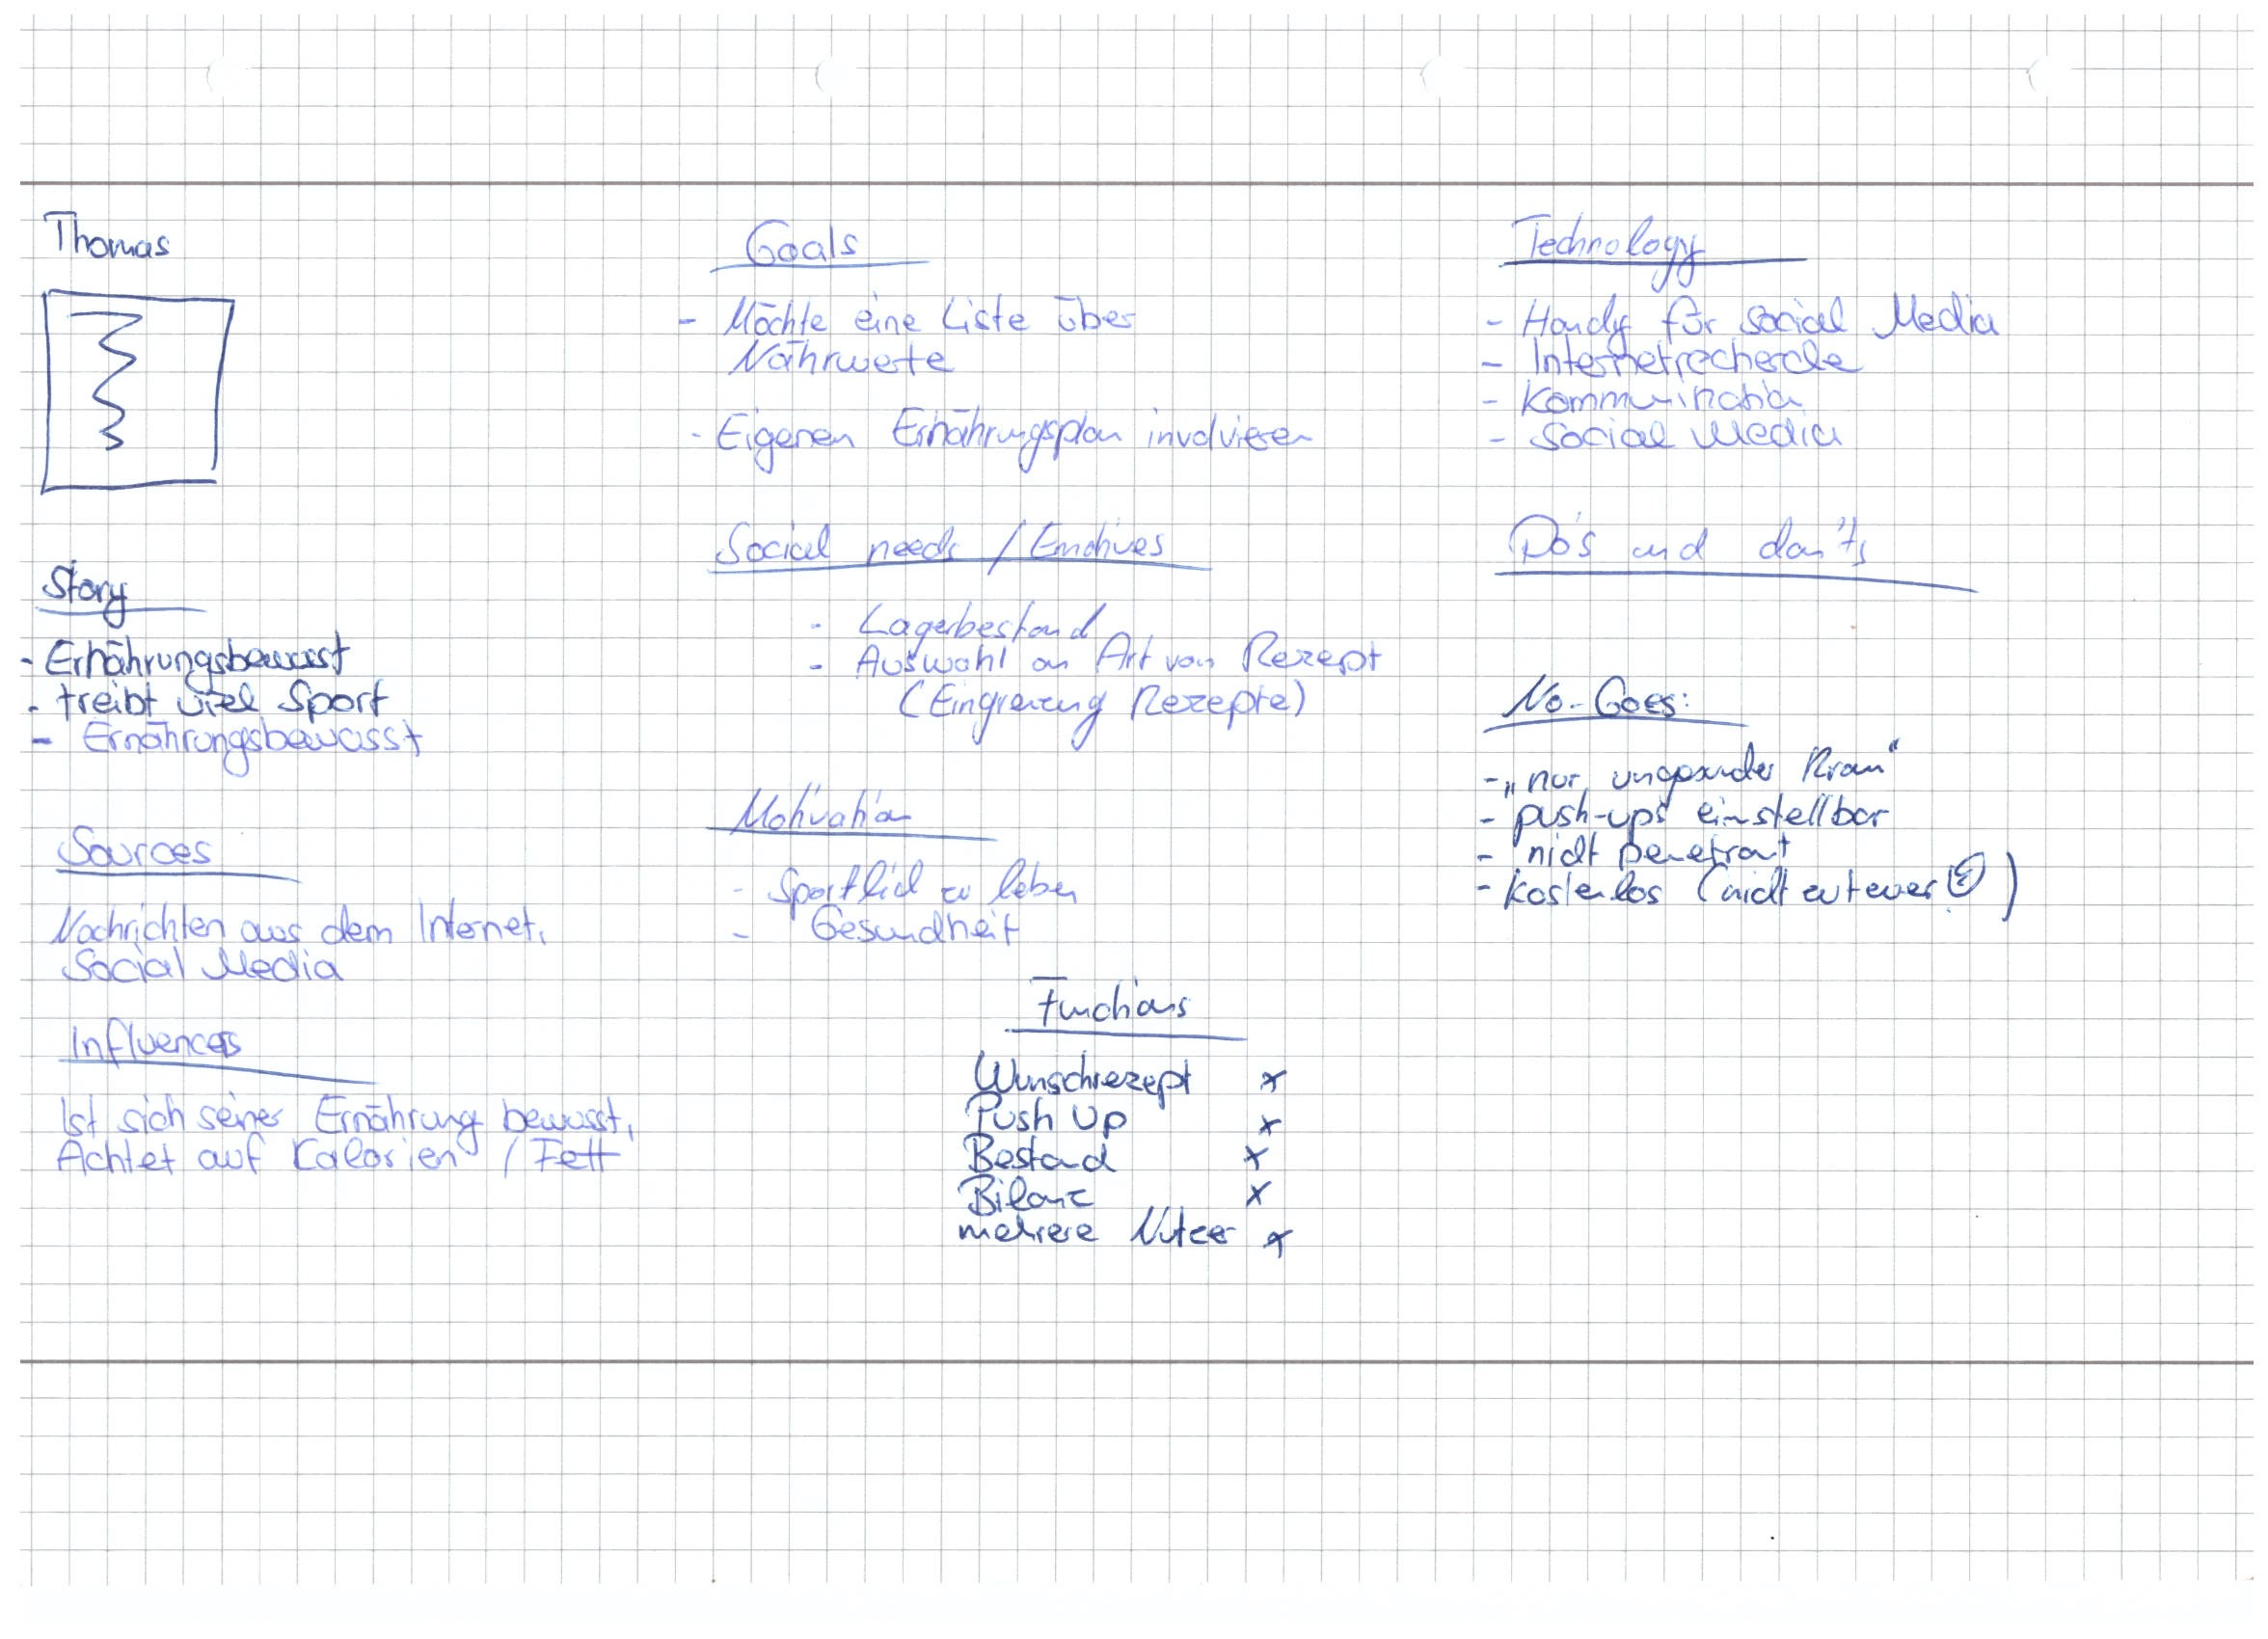 Thomas
Story
- Ernährungsbewusst
- treibt viel Sport
- Ernährungsbewusst
Sources
Nachrichten aus dem Internet,
Social Media
Influences
Ist sich seiner Ernährung bewusst,
Achtet auf Kalorien / Fett
Goals
- Möchte eine Liste über
Nährwerte
- Eigenen Ernährungsplan involvieren
Social needs / Emotives
- Lagerbestand
- Auswahl an Art von Rezept
(Eingrenzung Rezepte)
Motivation
- Sportlich zu leben
- Gesundheit
Functions
Wunschrezept x
Push Up x
Bestand x
Bilanz x
mehrere Nutzer x
Technology
- Handy für social Media
- Internetrecherche
- Kommunikation
- Social Media
Do's und don'ts
No-Goes:
- „nur ungesunder Kram“
- push-ups einstellbar
- nicht penetrant
- kostenlos (nicht zu teuer )